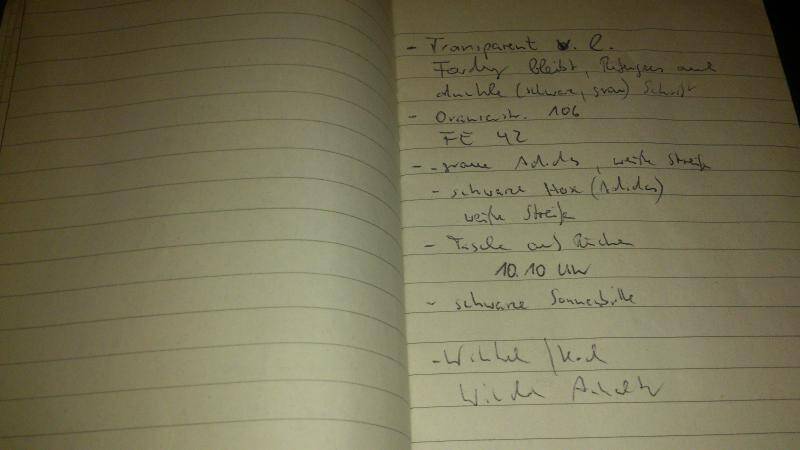 - Transparent v. l.
bleibt, Refugees and
dunkle (schwarz, grau) Schrift
- Oranienstr. 106
FE 42
- - graue Adidas, weiße Streife
- schwarze Hose (Adidas)
weiße Streife
- Tasche auf Rücken
10.10 Uhr
- schwarze Sonnenbrille